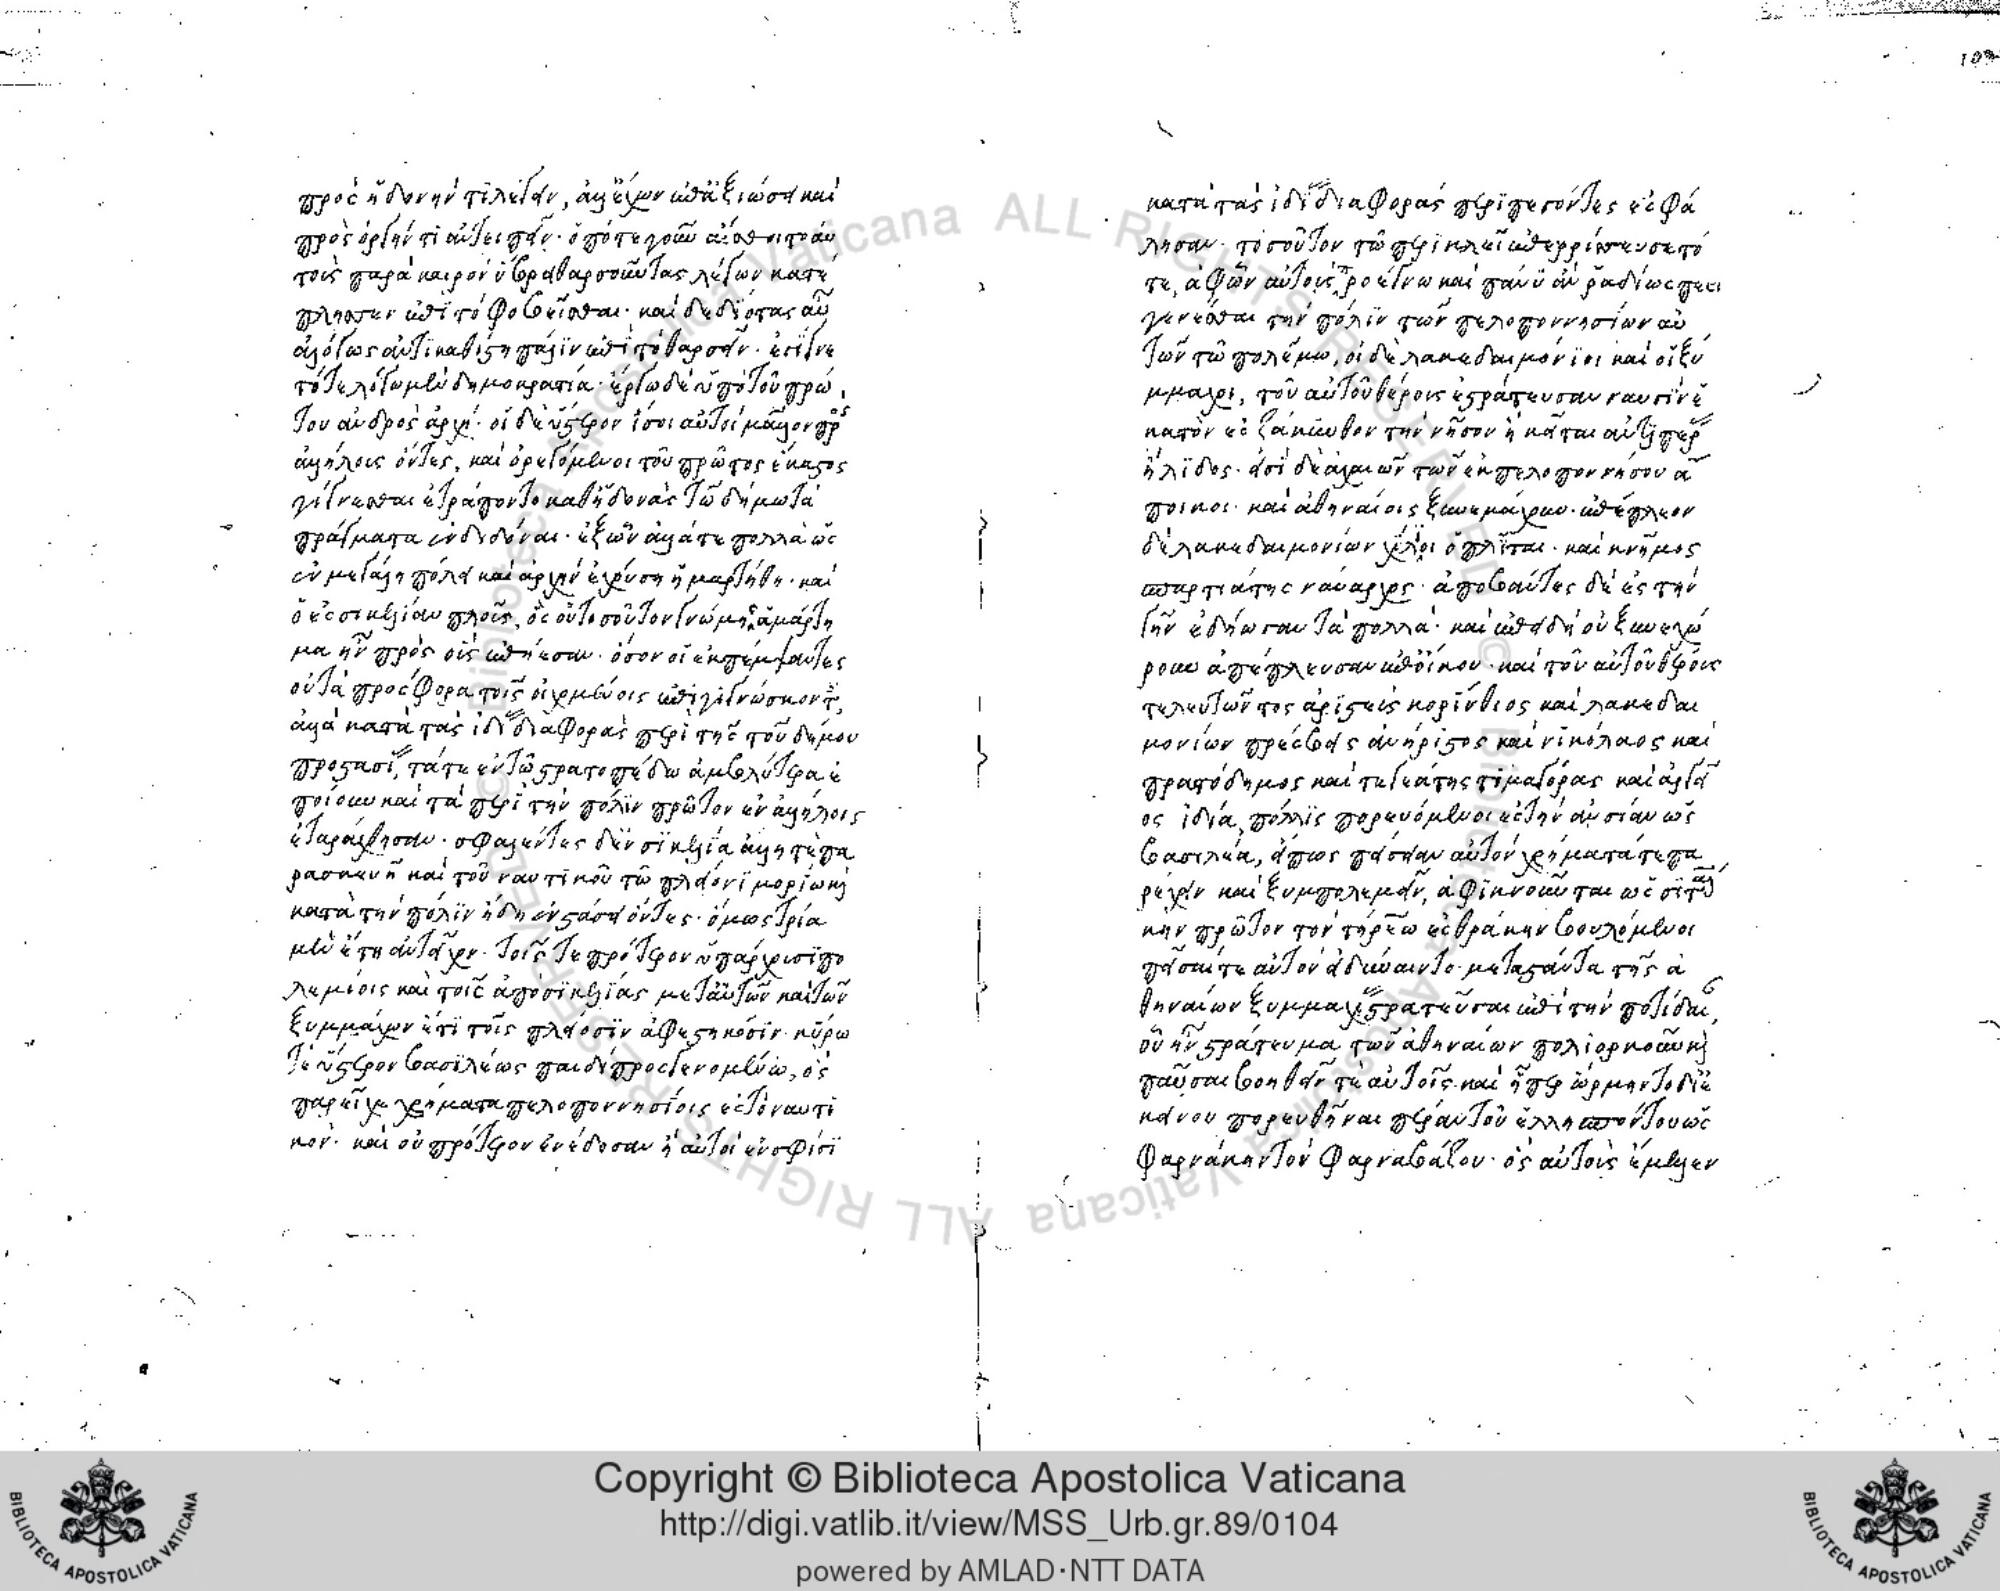 πρὸς ἡδονήν τι λέγειν, ἀλλ' ἔχων ἐπ' ἀξιώσει καὶ
πρὸς ὀργήν τι ἀντειπεῖν· ὁπότε γοῦν αἴσθοιτο αὐ
τοὺς παρὰ καιρὸν ὕβρει θαρσοῦντας λέγων κατέ
πλησσεν ἐπὶ τὸ φοβεῖσθαι· καὶ δεδιότας αὖ
ἀλόγως ἀντικαθίστη πάλιν ἐπὶ τὸ θαρσεῖν· ἐγίγνε
τό τε λόγῳ μὲν δημοκρατία· ἔργῳ δὲ ὑπὸ τοῦ πρώ
του ἀνδρὸς ἀρχή· οἱ δὲ ὕστερον ἴσοι αὐτοὶ μᾶλλον πρὸς
ἀλλήλους ὄντες, καὶ ὀρεγόμενοι τοῦ πρῶτος ἕκαστος
γίγνεσθαι ἐτράποντο καθ' ἡδονὰς τῷ δήμῳ τὰ
πράγματα ἐνδιδόναι· ἐξ ὧν ἄλλά τε πολλὰ ὡς
ἐν μεγάλῃ πόλει καὶ ἀρχὴν ἐχούσῃ ἡμαρτήθη· καὶ
ὁ ἐς σικελίαν πλοῦς, ὃς οὐ τοσοῦτον γνώμης ἁμάρτη
μα ἦν πρὸς οὓς ἐπῄεσαν· ὅσον οἱ ἐκπέμψαντες
οὐ τὰ πρόσφορα τοῖς οἰχομένοις ἐπιγιγνώσκοντες,
ἀλλὰ κατὰ τὰς ἰδίας διαφορὰς περὶ τῆς τοῦ δήμου
προστασίας, τά τε ἐν τῷ στρατοπέδῳ ἀμβλύτερα ἐ
ποίουν καὶ τὰ περὶ τὴν πόλιν πρῶτον ἐν ἀλλήλοις
ἐταράχθησαν· σφαλέντες δ' ἐν σικελίᾳ ἄλλῃ τε πα
ρασκευῇ καὶ τοῦ ναυτικοῦ τῷ πλείονι μορίῳ καὶ
κατὰ τὴν πόλιν ἤδη ἐν στάσει ὄντες· ὅμως τρία
μὲν ἔτη ἀντεῖχον· τοῖς τε πρότερον ὑπάρχουσι πο
λεμίοις καὶ τοῖς ἀπὸ σικελίας μετ' αὐτῶν καὶ τῶν
ξυμμάχων ἔτι τοῖς πλείοσιν ἀφεστηκόσιν· κύρῳ
τε ὕστερον βασιλέως παιδὶ προσγενομένῳ, ὃς
παρεῖχε χρήματα πελοποννησίοις ἐς τὸ ναυτι
κόν· καὶ οὐ πρότερον ἐνέδοσαν ἢ αὐτοὶ ἐν σφίσι
κατὰ τὰς ἰδίας διαφορὰς περιπεσόντες ἐσφά
λησαν· τοσοῦτον τῷ περικλεῖ ἐπερρίσσευσε τό
τε, ἀφ' ὧν αὐτὸς προέγνω καὶ πάνυ ἂν ῥαδίως περι
γενέσθαι τὴν πόλιν τῶν πελοποννησίων αὐ
τῶν τῷ πολέμῳ, οἱ δὲ λακεδαιμόνιοι καὶ οἱ ξύ
μμαχοι, τοῦ αὐτοῦ θέρους ἐστράτευσαν ναυσὶν ἑ
κατὸν ἐς ζάκυνθον τὴν νῆσον ἣ κεῖται ἀντιπέρας
ἤλιδος· εἰσὶ δὲ ἀχαιῶν τῶν ἐκ πελοποννήσου ἄ
ποικοι· καὶ ἀθηναίοις ξυνεμάχουν· ἐπέπλεον
δὲ λακεδαιμονίων χίλιοι ὁπλῖται· καὶ κνῆμος
σπαρτιάτης ναύαρχος· ἀποβάντες δὲ ἐς τὴν
γῆν ἐδῄωσαν τὰ πολλά· καὶ ἐπειδὴ οὐ ξυνεχώ
ρουν ἀπέπλευσαν ἐπ' οἴκου· καὶ τοῦ αὐτοῦ θέρους
τελευτῶντος ἀριστεὺς κορίνθιος καὶ λακεδαι
μονίων πρέσβεις ἀνήριστος καὶ νικόλαος καὶ
πρατόδημος καὶ τεγεάτης τιμαγόρας καὶ ἀργεῖ
ος ἰδίᾳ πόλλις πορευόμενοι ἐς τὴν ἀσίαν ὡς
βασιλέα, εἴπως πείσειαν αὐτὸν χρήματά τε πα
ρέχειν καὶ ξυμπολεμεῖν, ἀφικνοῦνται ὡς σιτάλ
κην πρῶτον τὸν τήρεω ἐς θράκην βουλόμενοι
πεῖσαί τε αὐτὸν εἰ δύναιντο μεταστάντα τῆς ἀ
θηναίων ξυμμαχίας στρατεῦσαι ἐπὶ τὴν ποτίδαιαν,
οὗ ἦν στράτευμα τῶν ἀθηναίων πολιορκοῦν καὶ
παῦσαι βοηθεῖν τε αὐτοῖς καὶ ᾗπερ ὥρμηντο δι' ἐ
κείνου πορευθῆναι πέραν τοῦ ἑλλησπόντου ὡς
φαρνάκην τὸν φαρναβάζου· ὃς αὐτοὺς ἔμελλεν
Copyright © Biblioteca Apostolica Vaticana
http://digi.vatlib.it/view/MSS_Urb.gr.89/0104
powered by AMLAD·NTT DATA
BIBLIOTECA APOSTOLICA VATICANA
BIBLIOTECA APOSTOLICA VATICANA